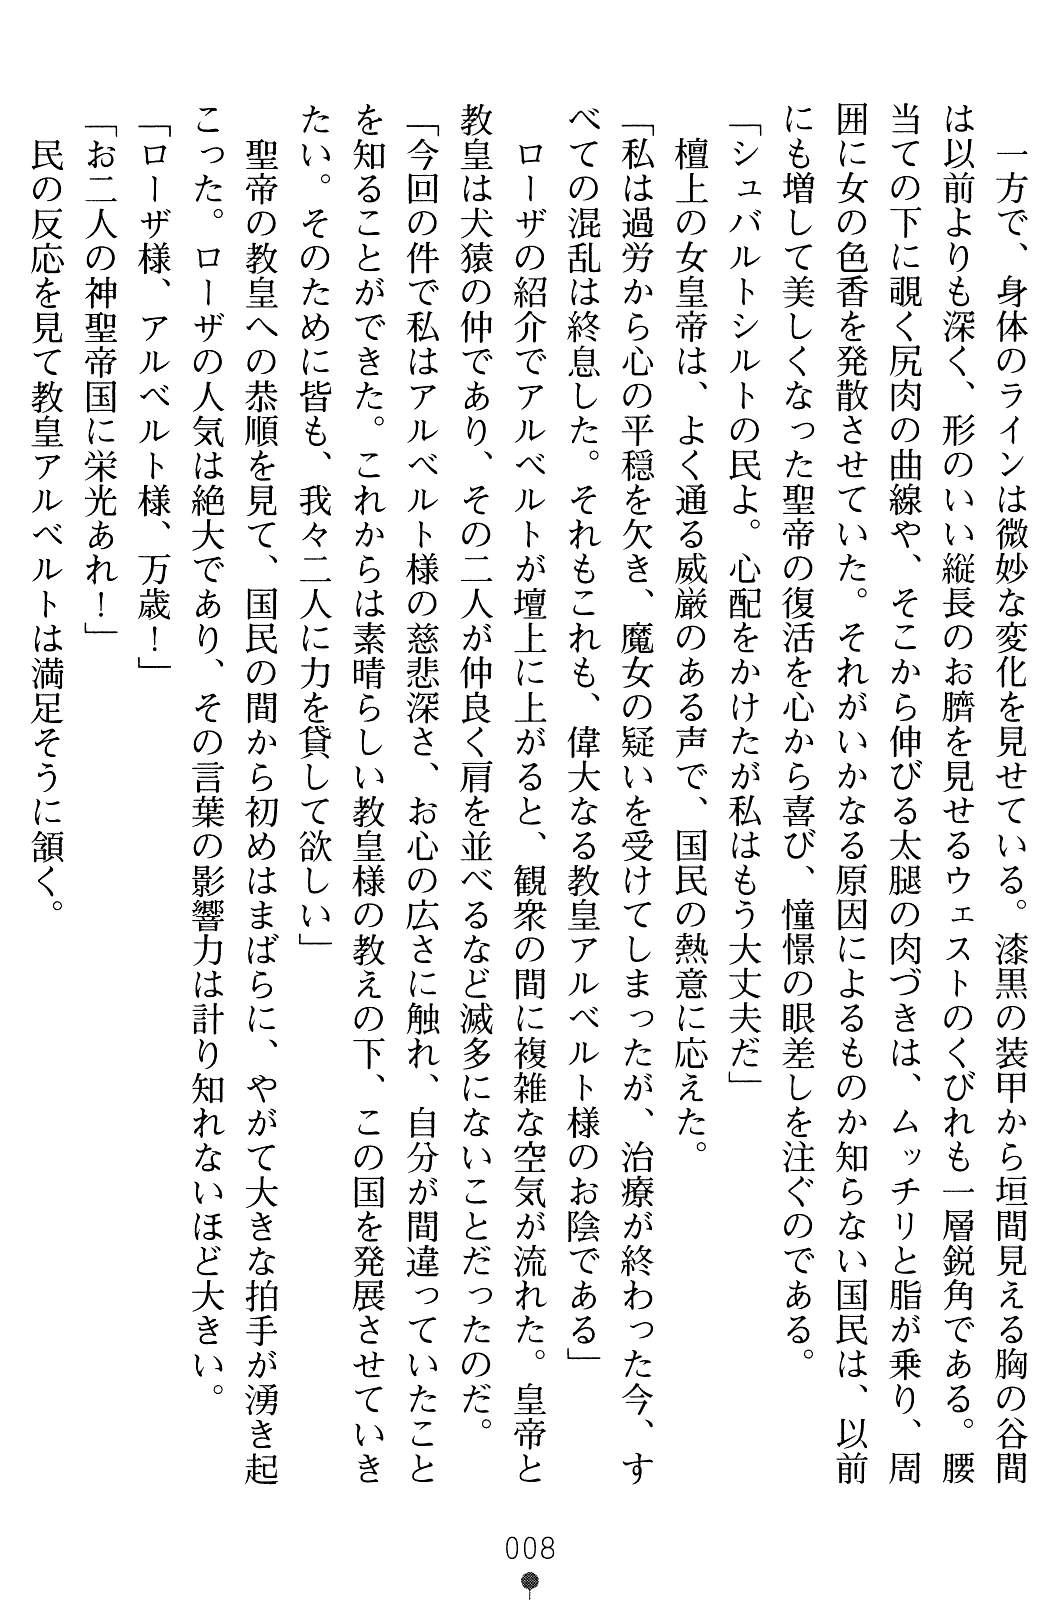 一方で、身体のラインは微妙な変化を見せている。漆黒の装甲から垣間見える胸の谷間
は以前よりも深く、形のいい縦長のお臍を見せるウェストのくびれも一層鋭角である。腰
当ての下に覗く尻肉の曲線や、そこから伸びる太腿の肉づきは、ムッチリと脂が乗り、周
囲に女の色香を発散させていた。それがいかなる原因によるものか知らない国民は、以前
にも増して美しくなった聖帝の復活を心から喜び、憧憬の眼差しを注ぐのである。
「シュバルトシルトの民よ。心配をかけたが私はもう大丈夫だ」
　檀上の女皇帝は、よく通る威厳のある声で、国民の熱意に応えた。
「私は過労から心の平穏を欠き、魔女の疑いを受けてしまったが、治療が終わった今、す
べての混乱は終息した。それもこれも、偉大なる教皇アルベルト様のお陰である」
　ローザの紹介でアルベルトが壇上に上がると、観衆の間に複雑な空気が流れた。皇帝と
教皇は犬猿の仲であり、その二人が仲良く肩を並べるなど滅多にないことだったのだ。
「今回の件で私はアルベルト様の慈悲深さ、お心の広さに触れ、自分が間違っていたこと
を知ることができた。これからは素晴らしい教皇様の教えの下、この国を発展させていき
たい。そのために皆も、我々二人に力を貸して欲しい」
　聖帝の教皇への恭順を見て、国民の間から初めはまばらに、やがて大きな拍手が湧き起
こった。ローザの人気は絶大であり、その言葉の影響力は計り知れないほど大きい。
「ローザ様、アルベルト様、万歳！」
「お二人の神聖帝国に栄光あれ！」
　民の反応を見て教皇アルベルトは満足そうに頷く。
008